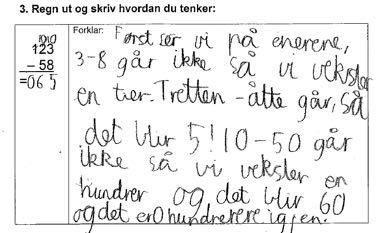 3. Regn ut og skriv hvordan du tenker:
1010
123
- 58
=065
Forklar: Først ser vi på enerene,
3-8 går ikke så vi veksler
en tier. Tretten - åtte går, så
det blir 5! 10-50 går
ikke så vi veksler en
hundrer og det blir 60
og det er 0 hundrerere igjen.